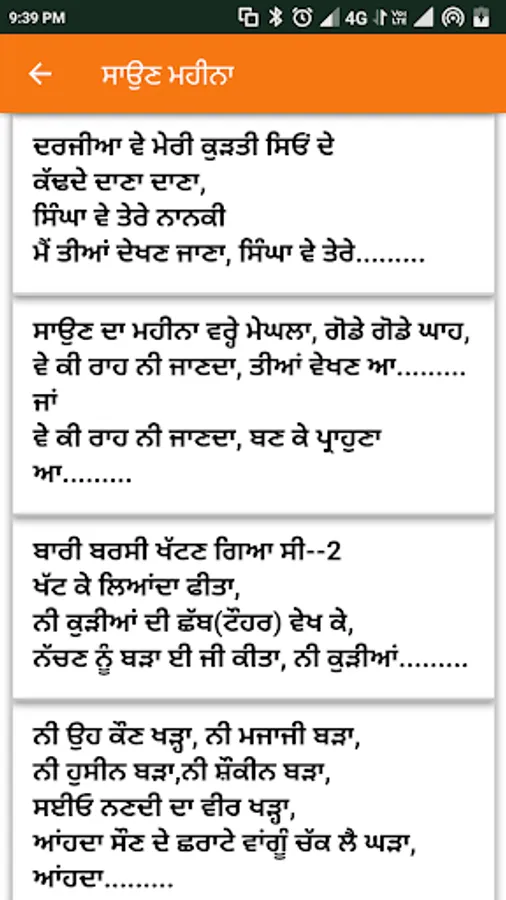 9:39 PM
4G
VoLTE
ਸਾਉਣ ਮਹੀਨਾ
ਦਰਜੀਆ ਵੇ ਮੇਰੀ ਕੁੜਤੀ ਸਿਓਂ ਦੇ
ਕੱਢਦੇ ਦਾਣਾ ਦਾਣਾ,
ਸਿੰਘਾ ਵੇ ਤੇਰੇ ਨਾਨਕੀ
ਮੈਂ ਤੀਆਂ ਦੇਖਣ ਜਾਣਾ, ਸਿੰਘਾ ਵੇ ਤੇਰੇ.........
ਸਾਉਣ ਦਾ ਮਹੀਨਾ ਵਰ੍ਹੇ ਮੇਘਲਾ, ਗੋਡੇ ਗੋਡੇ ਘਾਹ,
ਵੇ ਕੀ ਰਾਹ ਨੀ ਜਾਣਦਾ, ਤੀਆਂ ਵੇਖਣ ਆ.........
ਜਾਂ
ਵੇ ਕੀ ਰਾਹ ਨੀ ਜਾਣਦਾ, ਬਣ ਕੇ ਪ੍ਰਾਹੁਣਾ
ਆ.........
ਬਾਰੀ ਬਰਸੀ ਖੱਟਣ ਗਿਆ ਸੀ--2
ਖੱਟ ਕੇ ਲਿਆਂਦਾ ਫੀਤਾ,
ਨੀ ਕੁੜੀਆਂ ਦੀ ਛੱਬ(ਟੌਹਰ) ਵੇਖ ਕੇ,
ਨੱਚਣ ਨੂੰ ਬੜਾ ਈ ਜੀ ਕੀਤਾ, ਨੀ ਕੁੜੀਆਂ.........
ਨੀ ਉਹ ਕੌਣ ਖੜ੍ਹਾ, ਨੀ ਮਜਾਜੀ ਬੜਾ,
ਨੀ ਹੁਸੀਨ ਬੜਾ,ਨੀ ਸ਼ੌਕੀਨ ਬੜਾ,
ਸਈਓ ਨਣਦੀ ਦਾ ਵੀਰ ਖੜ੍ਹਾ,
ਆਂਹਦਾ ਸੌਣ ਦੇ ਛਰਾਟੇ ਵਾਂਗੂੰ ਚੱਕ ਲੈ ਘੜਾ,
ਆਂਹਦਾ.........